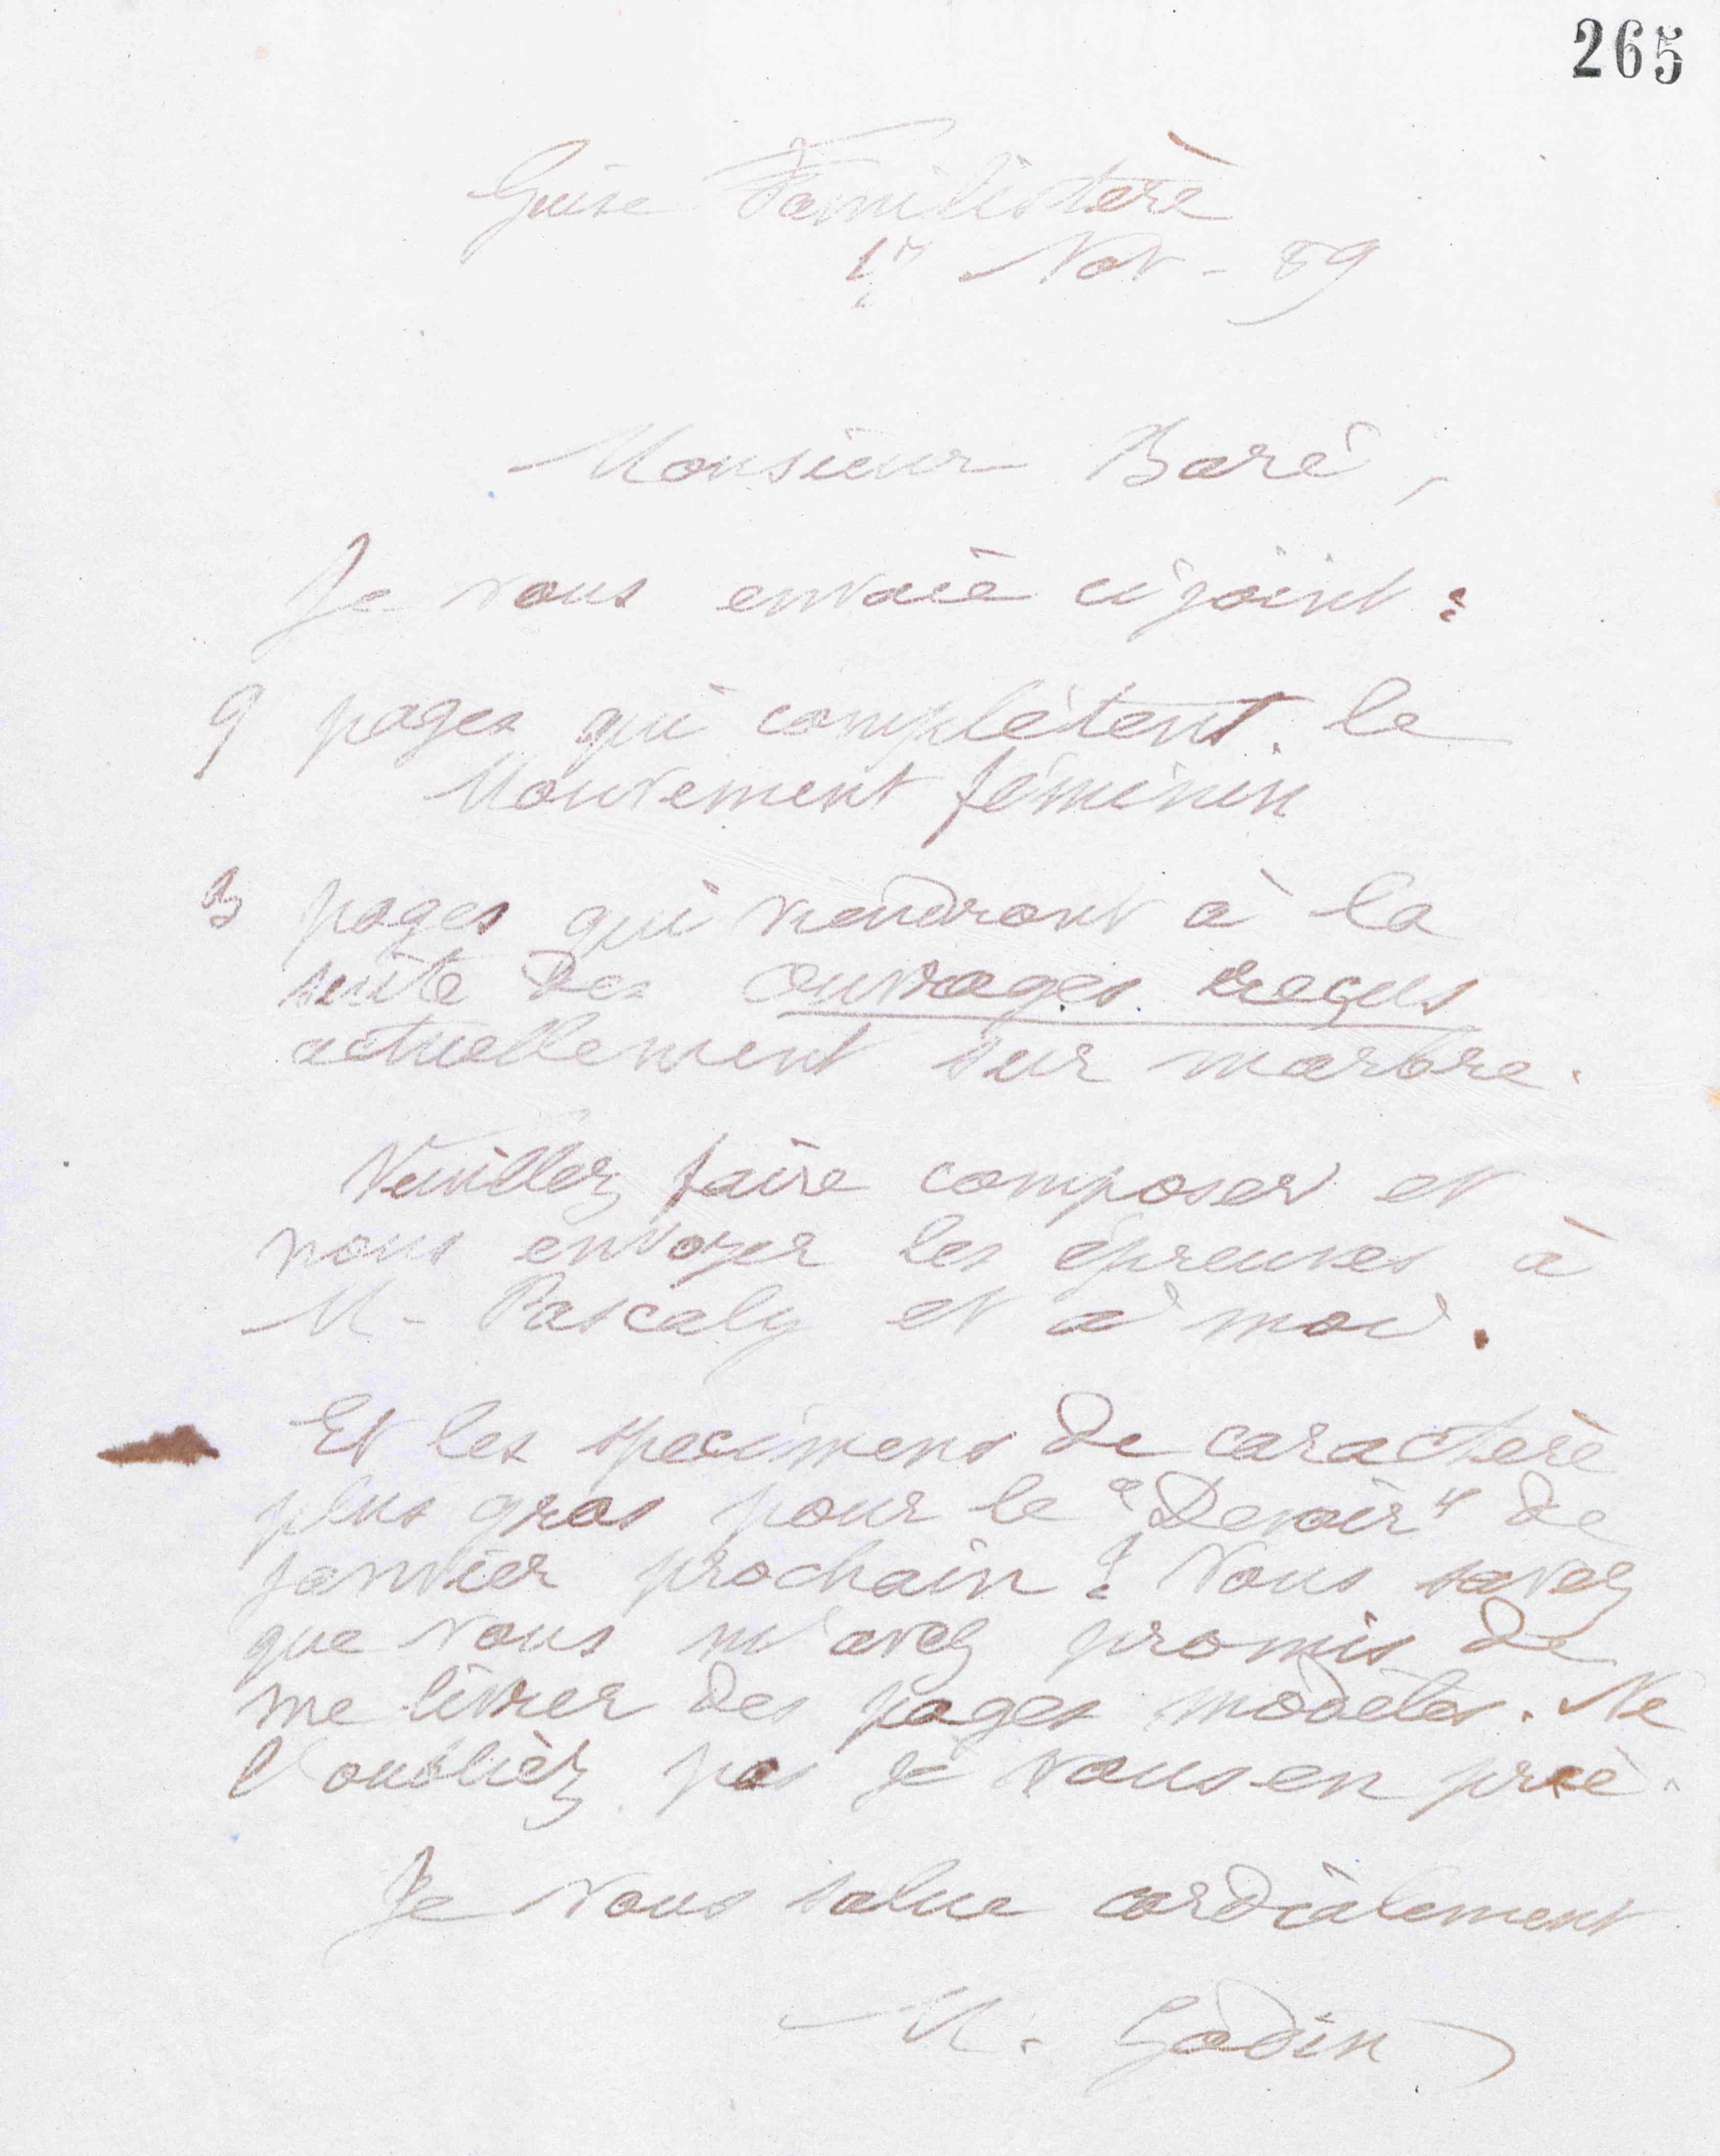 265
Guise Familistère
1er Nov - 89
Monsieur Baré,
Je vous envoie ci joint :
9 pages qui complètent le
Mouvement féminin
3 pages qui viendront à la
suite des ouvrages reçus
actuellement sur marbre.
Veuillez faire composer et
nous envoyer les épreuves à
M. Pascaly et à moi.
Et les specimens de caractère
plus gros pour le "Devoir" de
janvier prochain ? Vous savez
que vous m'avez promis de
me livrer des pages modèles. Ne
l'oubliez pas je vous en prie.
Je vous salue cordialement
M. Godin